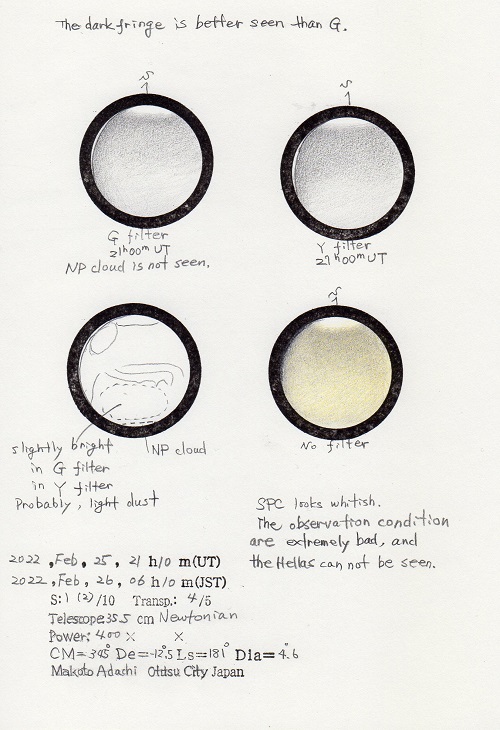 The dark fringe is better seen than G.
S
S
G filter
21h00m UT
NP cloud is not seen.
Y filter
21h00m UT
S
slightly bright
in G filter
in Y filter
Probably, light dust
NP cloud
No filter
SPC looks whitish.
The observation condition
are extremely bad, and
the Hellas can not be seen.
2022 ,Feb, 25, 21 h10 m(UT)
2022 ,Feb, 26, 06 h10 m(JST)
S:1 (2)/10 Transp.: 4/5
Telescope:35.5 cm Newtonian
Power: 400 × ×
CM=345° De=-12.5 Ls=181° Dia=4.6"
Makoto Adachi Otusu City Japan